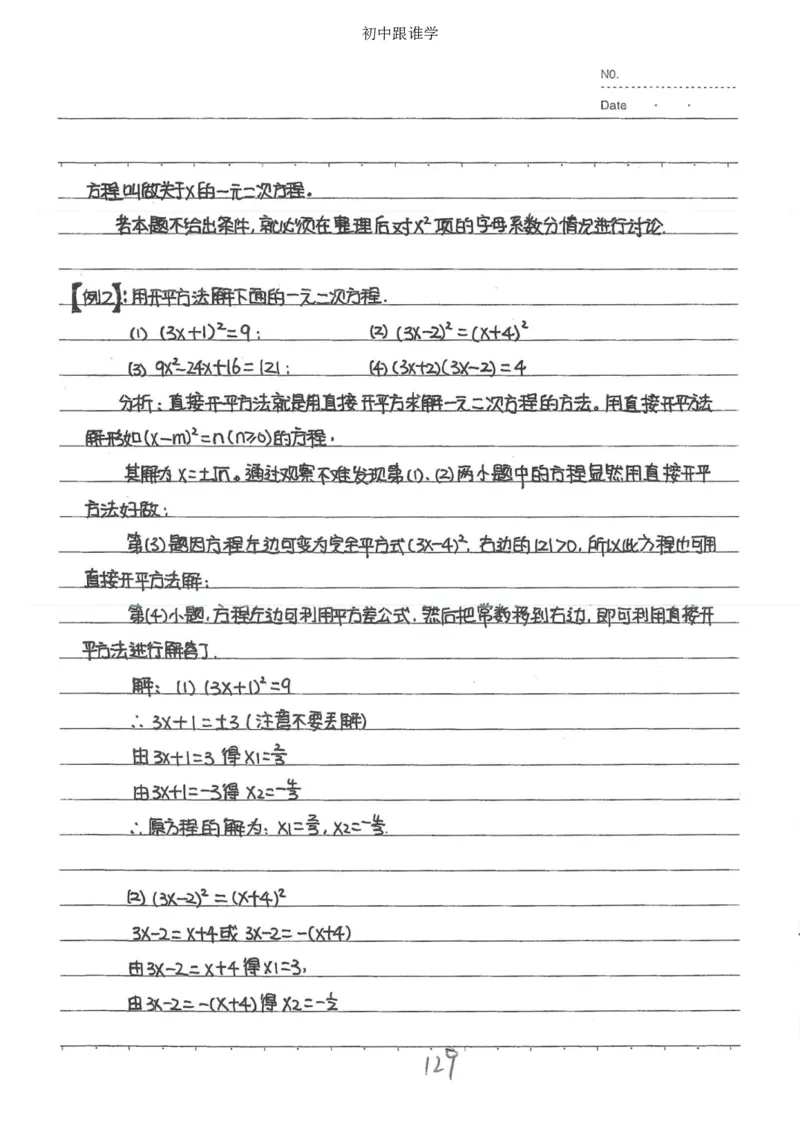 初中跟谁学
NO.
Date
方程叫做关于x的一元二次方程。
若本题不给出条件,就必须在整理后对x²项的字母系数分情况进行讨论.
【例2】:用开平方法解下面的一元二次方程.
(1) (3x+1)²=9; (2) (3x-2)²=(x+4)²
(3) 9x²-24x+16=121; (4) (3x+2)(3x-2)=4
分析:直接开平方法就是用直接开平方求解一元二次方程的方法。用直接开平方法
解形如(x-m)²=n(n≥0)的方程,
其解为x=±√n。通过观察不难发现第(1)、(2)两小题中的方程显然用直接开平
方法好做;
第(3)题因方程左边可变为完全平方式(3x-4)²,右边的121>0,所以此方程也可用
直接开平方法解;
第(4)小题,方程左边可利用平方差公式,然后把常数移到右边,即可利用直接开
平方法进行解答了.
解: (1) (3x+1)²=9
∴ 3x+1=±3(注意不要丢解)
由3x+1=3 得x1=2/3
由3x+1=-3得 x2=-4/3
∴原方程的解为: x1=2/3, x2=-4/3.
(2) (3x-2)²=(x+4)²
3x-2=x+4或 3x-2=-(x+4)
由3x-2=x+4得x1=3,
由3x-2=-(x+4)得 x2=-1/2
129